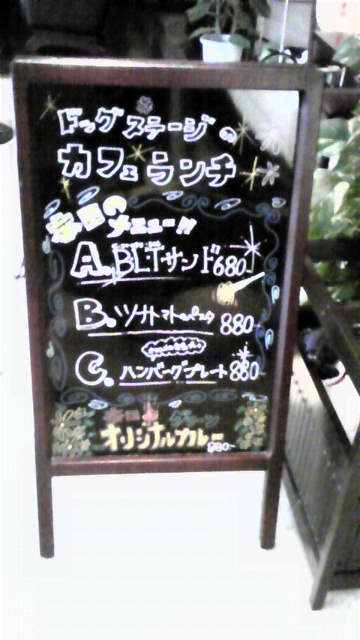 ドッグステージの
カフェランチ
本日のメニュー!!
A. BLTサンド 680
B. ツナトマトのパスタ 880
C. ハンバーグプレート 880
オリジナルカレー